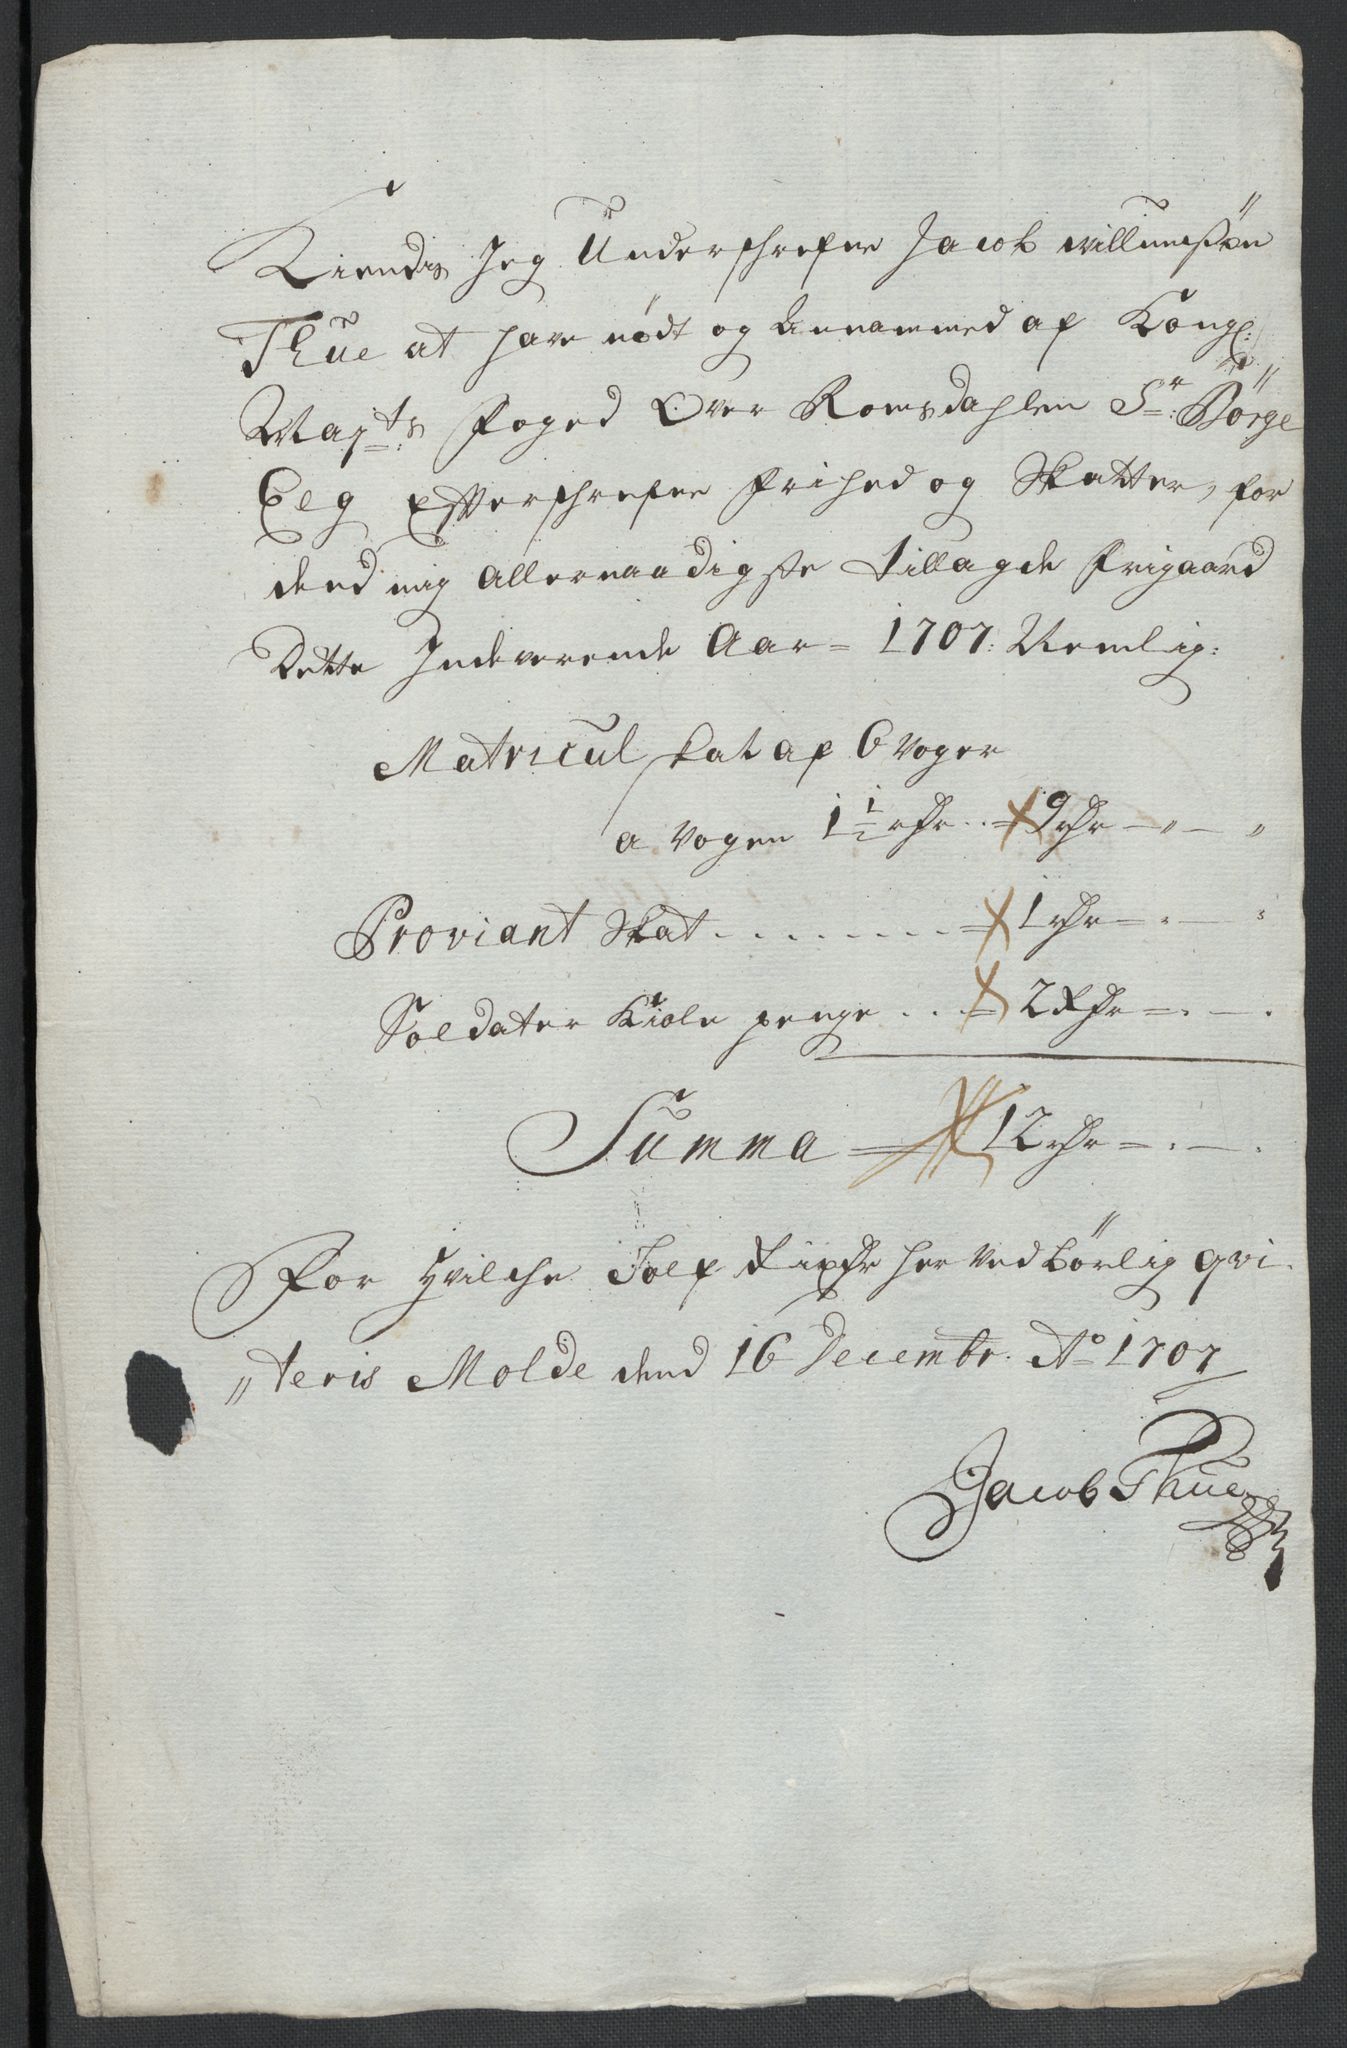 Kiendis Jeg Underschrefne Jacob willumsßøn
Thue at have nødt og Annammed af Kongl:
Mayts Foged Over Romsdahlen Sr: Børge
Eeg Efterschrefne Frihed og Skatter, for
dend mig Allernaadigste tillagde Frigaard
Dette Indeverende Aar = 1707: Nemlig:
Matricul skat af 6 voger
a vogen 1½ rdr .. = 9 rdr — " — "
Proviant Skat . . . . . . . . = 1 rdr — . — :
Soldater Kiole penge . . = 2 Rdr — . — .
Summa = 12 rdr — . — .
For hvilche Tolf Rixdr her ved børlig qvi-
"teris Molde dend 16 Decembr. Ao 1707
Jacob Thue